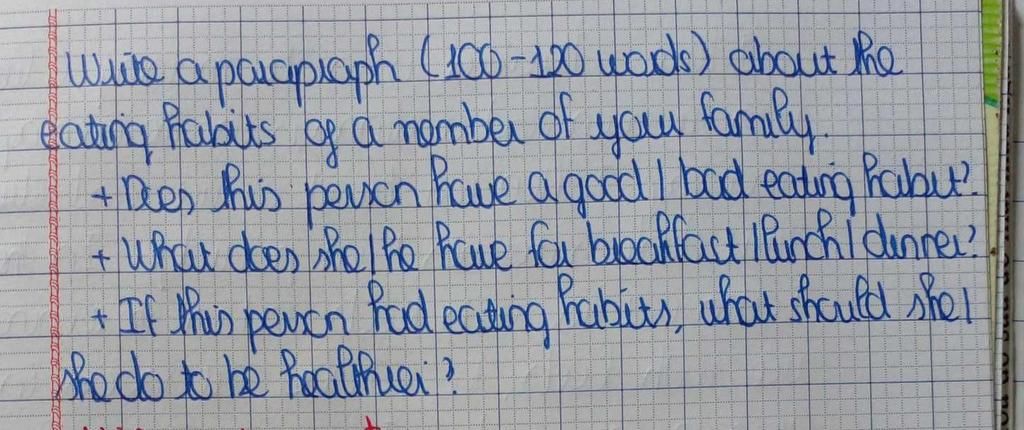 Write a paragraph (100-120 words) about the
eating habits of a member of your family.
+ Does this person have a good / bad eating habit?
+ What does she/he have for breakfast / lunch / dinner?
+ If this person had eating habits, what should she/
she do to be healthier?